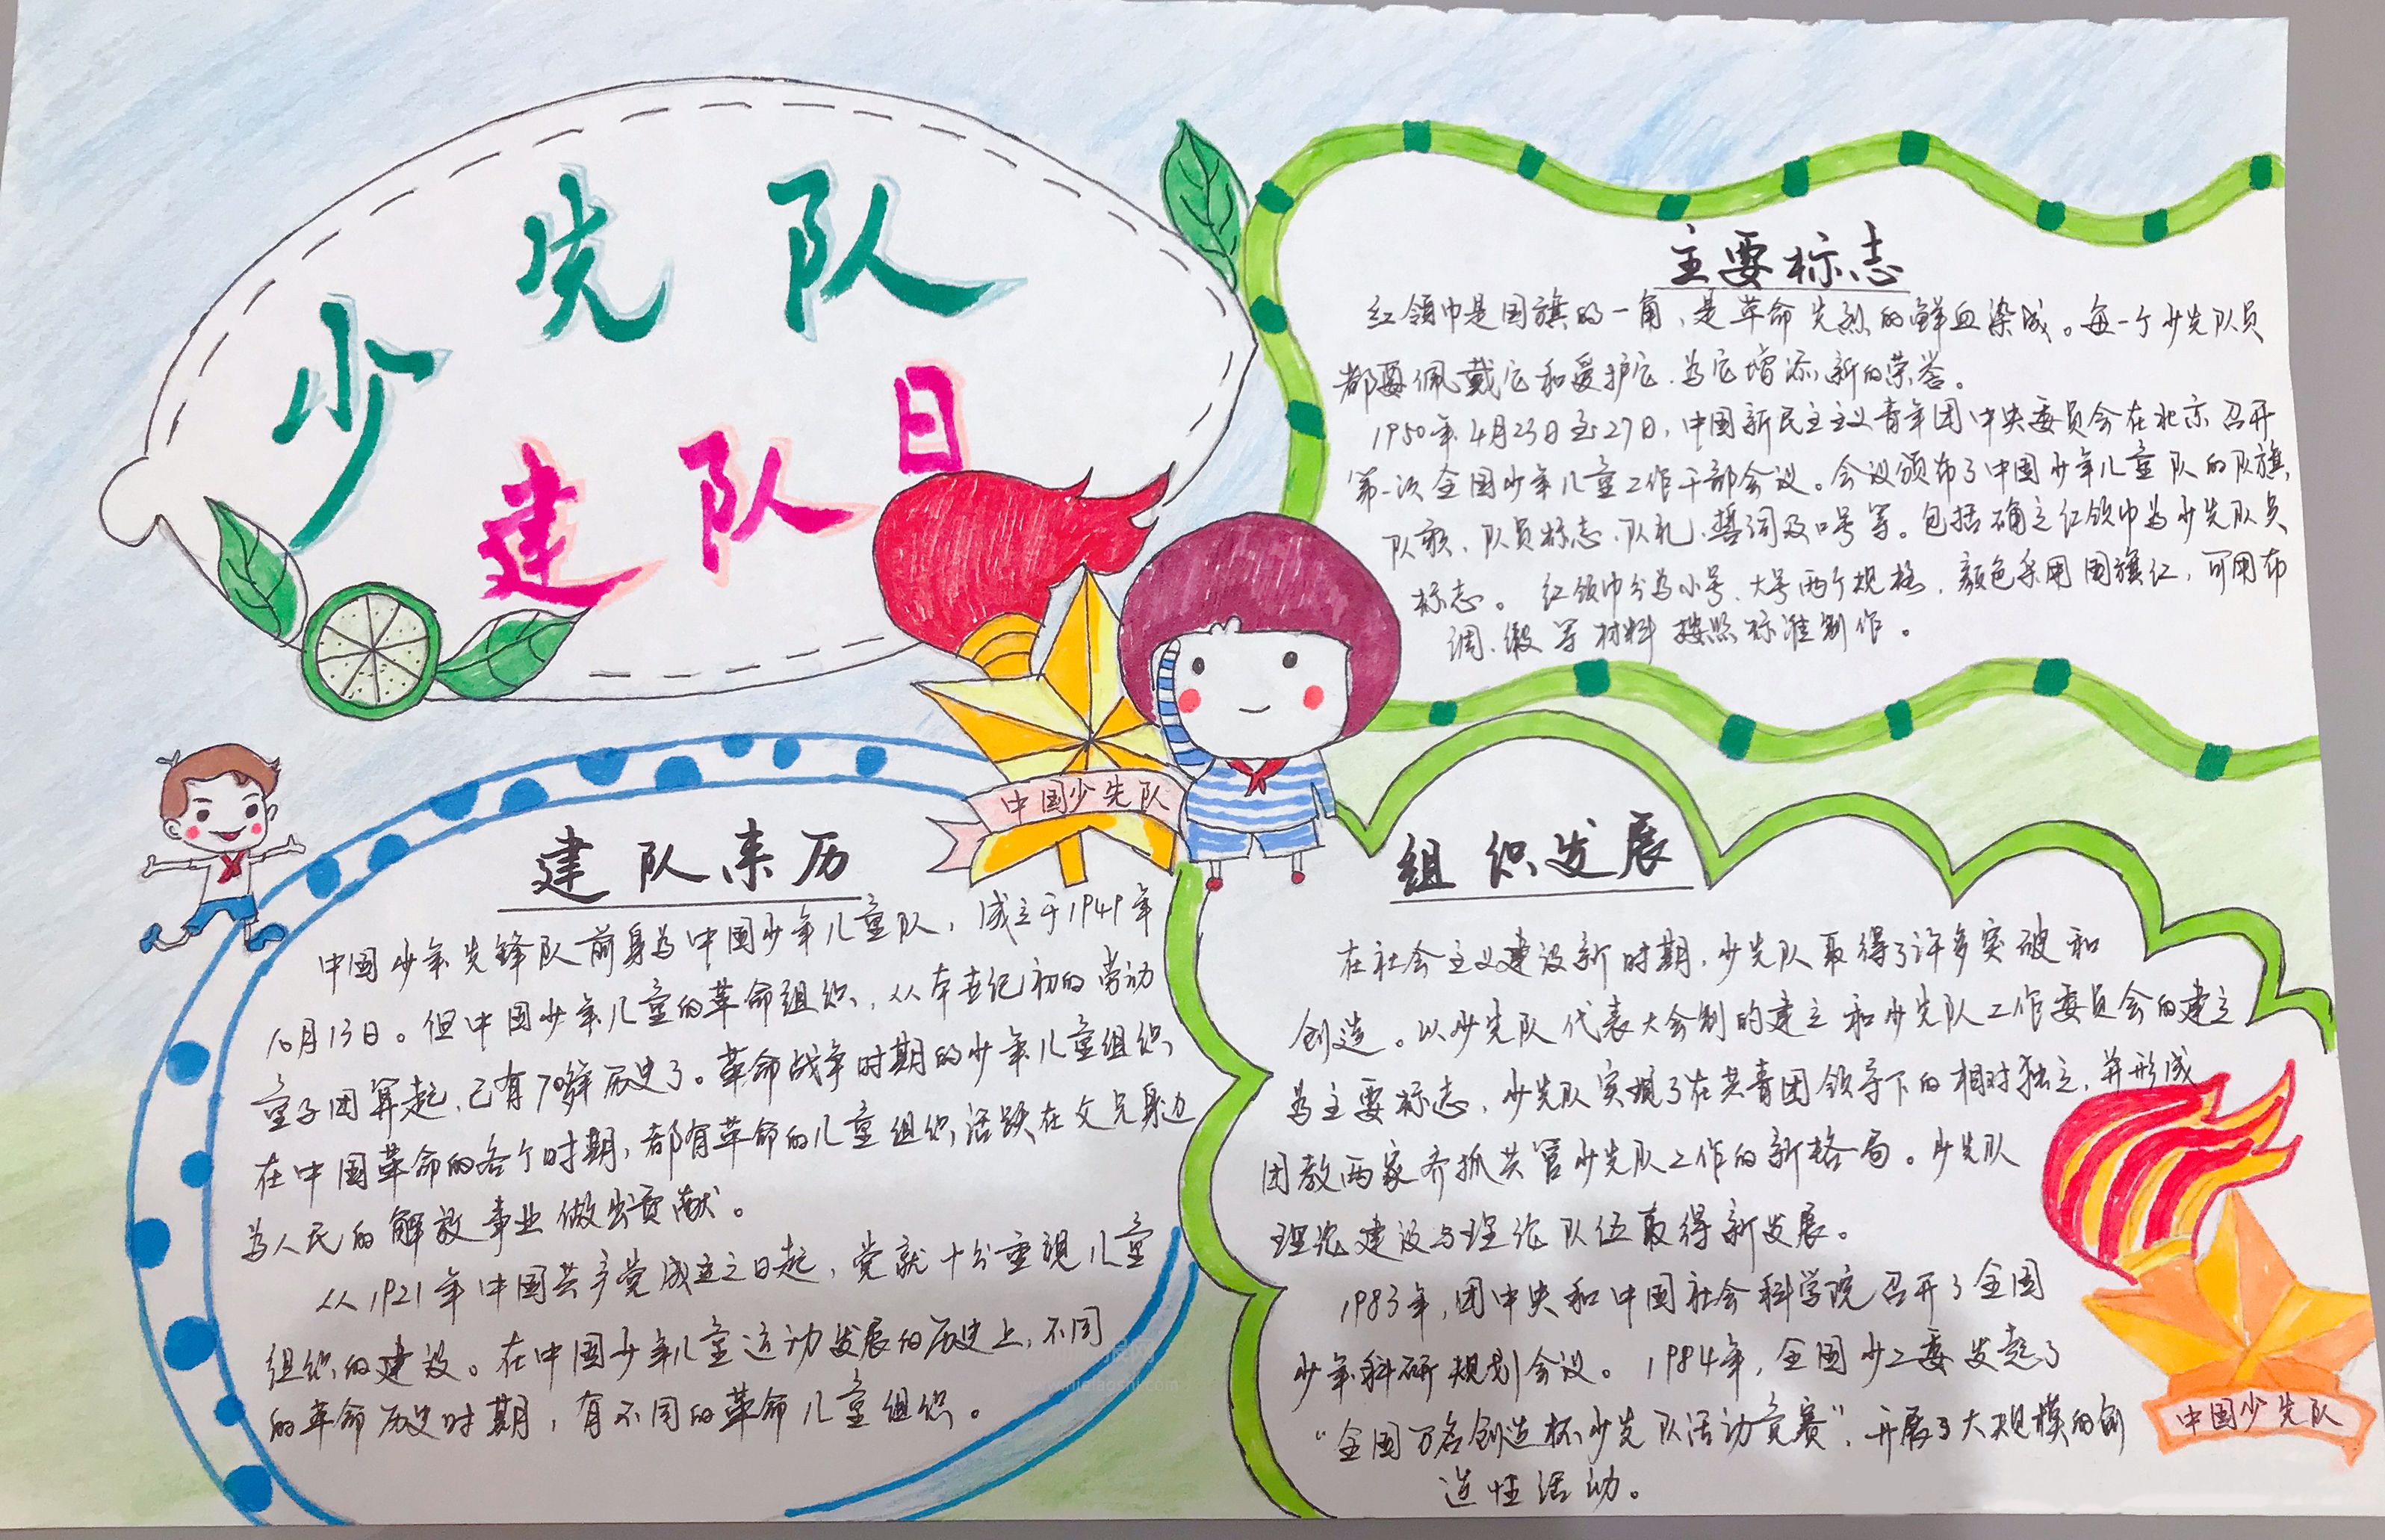 少先队
建队日
主要标志
红领巾是国旗的一角,是革命先烈的鲜血染成。每一个少先队员
都要佩戴它和爱护它,为它增添新的荣誉。
1950年4月23日至27日,中国新民主主义青年团中央委员会在北京召开
第一次全国少年儿童工作干部会议。会议颁布了中国少年儿童队的队旗,
队歌、队员标志、队礼、誓词及口号等。包括确立红领巾为少先队员
标志。红领巾分为小号、大号两个规格,颜色采用国旗红,可用布
绸、缎等材料按照标准制作。
中国少先队
建队来历
中国少年先锋队前身为中国少年儿童队,成立于1949年
10月13日。但中国少年儿童的革命组织,从本世纪初的劳动
童子团算起,已有70多年历史了。革命战争时期的少年儿童组织
在中国革命的各个时期,都有革命的儿童组织活跃在父兄身边
为人民的解放事业做出贡献。
从1921年中国共产党成立之日起,党就十分重视儿童
组织的建设。在中国少年儿童运动发展的历史上,不同
的革命历史时期,有不同的革命儿童组织。
组织发展
在社会主义建设新时期,少先队取得了许多突破和
创造。以少先队代表大会制的建立和少先队工作委员会的建立
为主要标志,少先队实现了在共青团领导下的相对独立,并形成
团教两家齐抓共管少先队工作的新格局。少先队
理论建设与理论队伍取得新发展。
1983年,团中央和中国社会科学院召开了全国
少年科研规划会议。1984年,全国少工委发起了
“全国万名创造杯少先队活动竞赛”,开展了大规模的创
造性活动。
中国少先队